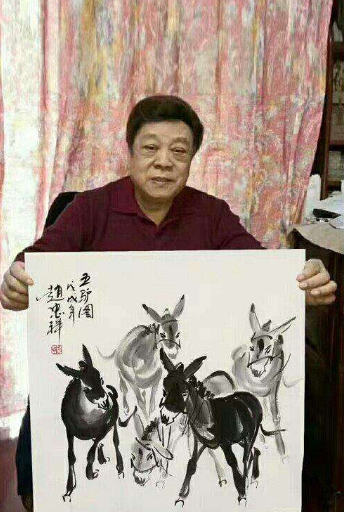 五驴图
戊戌年
趙忠祥